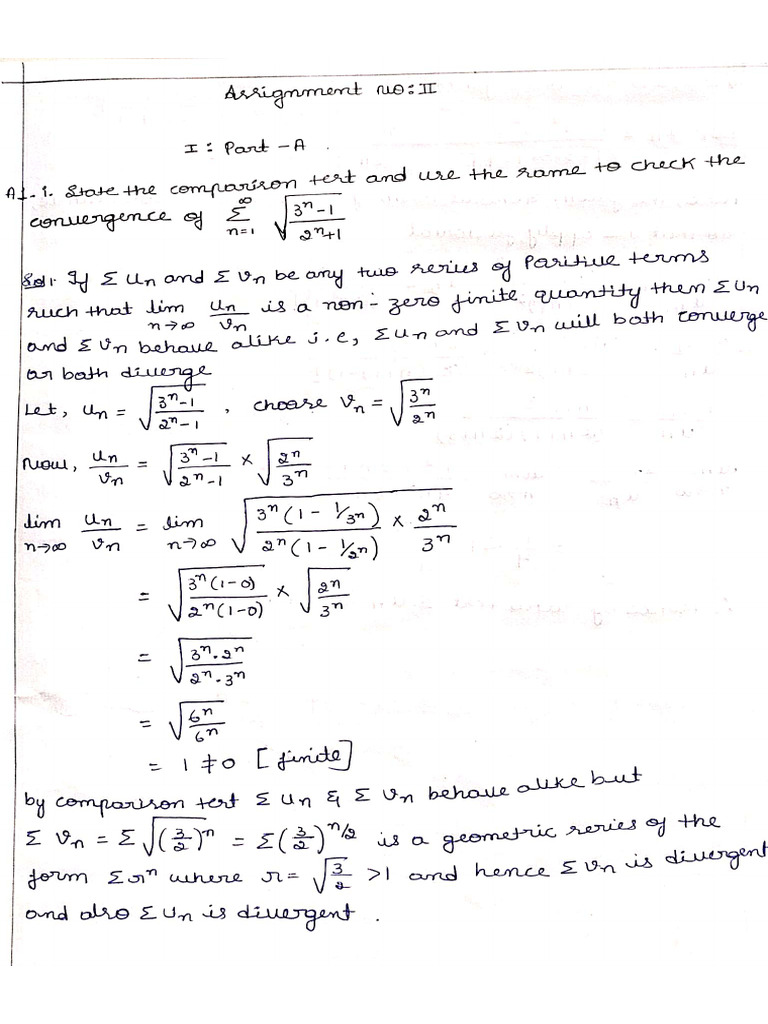 Assignment no: II
I : Part - A .
A1. 1. State the comparison test and use the same to check the
convergence of ∞∑n=1 √(3ⁿ-1 / 2ⁿ+1)
Sol: If Σ Un and Σ Vn be any two series of Positive terms
such that lim n→∞ Un/Vn is a non-zero finite quantity then Σ Un
and Σ Vn behave alike i.e, Σ Un and Σ Vn will both converge
or both diverge
Let, Un = √(3ⁿ-1 / 2ⁿ-1) , choose Vn = √(3ⁿ / 2ⁿ)
Now, Un/Vn = √(3ⁿ-1 / 2ⁿ-1) × √(2ⁿ / 3ⁿ)
lim n→∞ Un/Vn = lim n→∞ √(3ⁿ(1 - 1/3ⁿ) / 2ⁿ(1 - 1/2ⁿ) × 2ⁿ / 3ⁿ)
= √(3ⁿ(1-0) / 2ⁿ(1-0)) × √(2ⁿ / 3ⁿ)
= √(3ⁿ.2ⁿ / 2ⁿ.3ⁿ)
= √(6ⁿ / 6ⁿ)
= 1 ≠ 0 [finite]
by comparison test Σ Un & Σ Vn behave alike but
Σ Vn = Σ √(3/2)ⁿ = Σ (3/2)^n/2 is a geometric series of the
form Σ rⁿ where r = √3/2 >1 and hence Σ Vn is divergent
and also Σ Un is divergent .